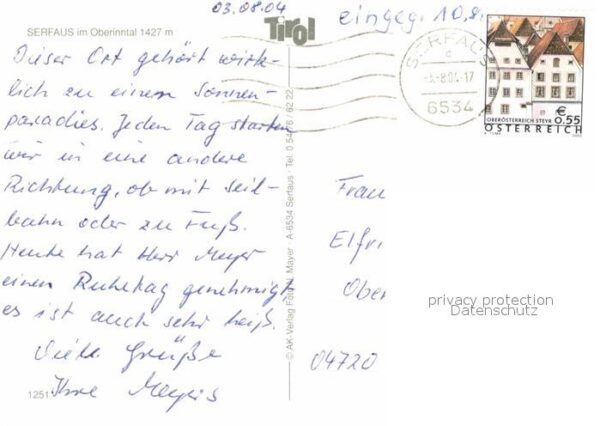 03.08.04
eingeg. 10.8.
SERFAUS im Oberinntal 1427 m
Tirol
Dieser Ort gehört wirk-
lich zu einem Sonnen-
paradies. Jeden Tag starten
wir in eine andere
Richtung, ob mit Seil-
bahn oder zu Fuß.
Heute hat Herr Meyer
einen Ruhetag genehmigt,
es ist auch sehr heiß.
Viele Grüße
Ihre Meyers
1251
© AK-Verlag Foto N. Mayer A-6534 Serfaus · Tel. 0 54 76 / 62 22
SERFAUS
c
-8.04-17
6534
€
0,55
OBERÖSTERREICH STEYR
ÖSTERREICH
Frau
Elfri
Ober
04720
privacy protection
Datenschutz